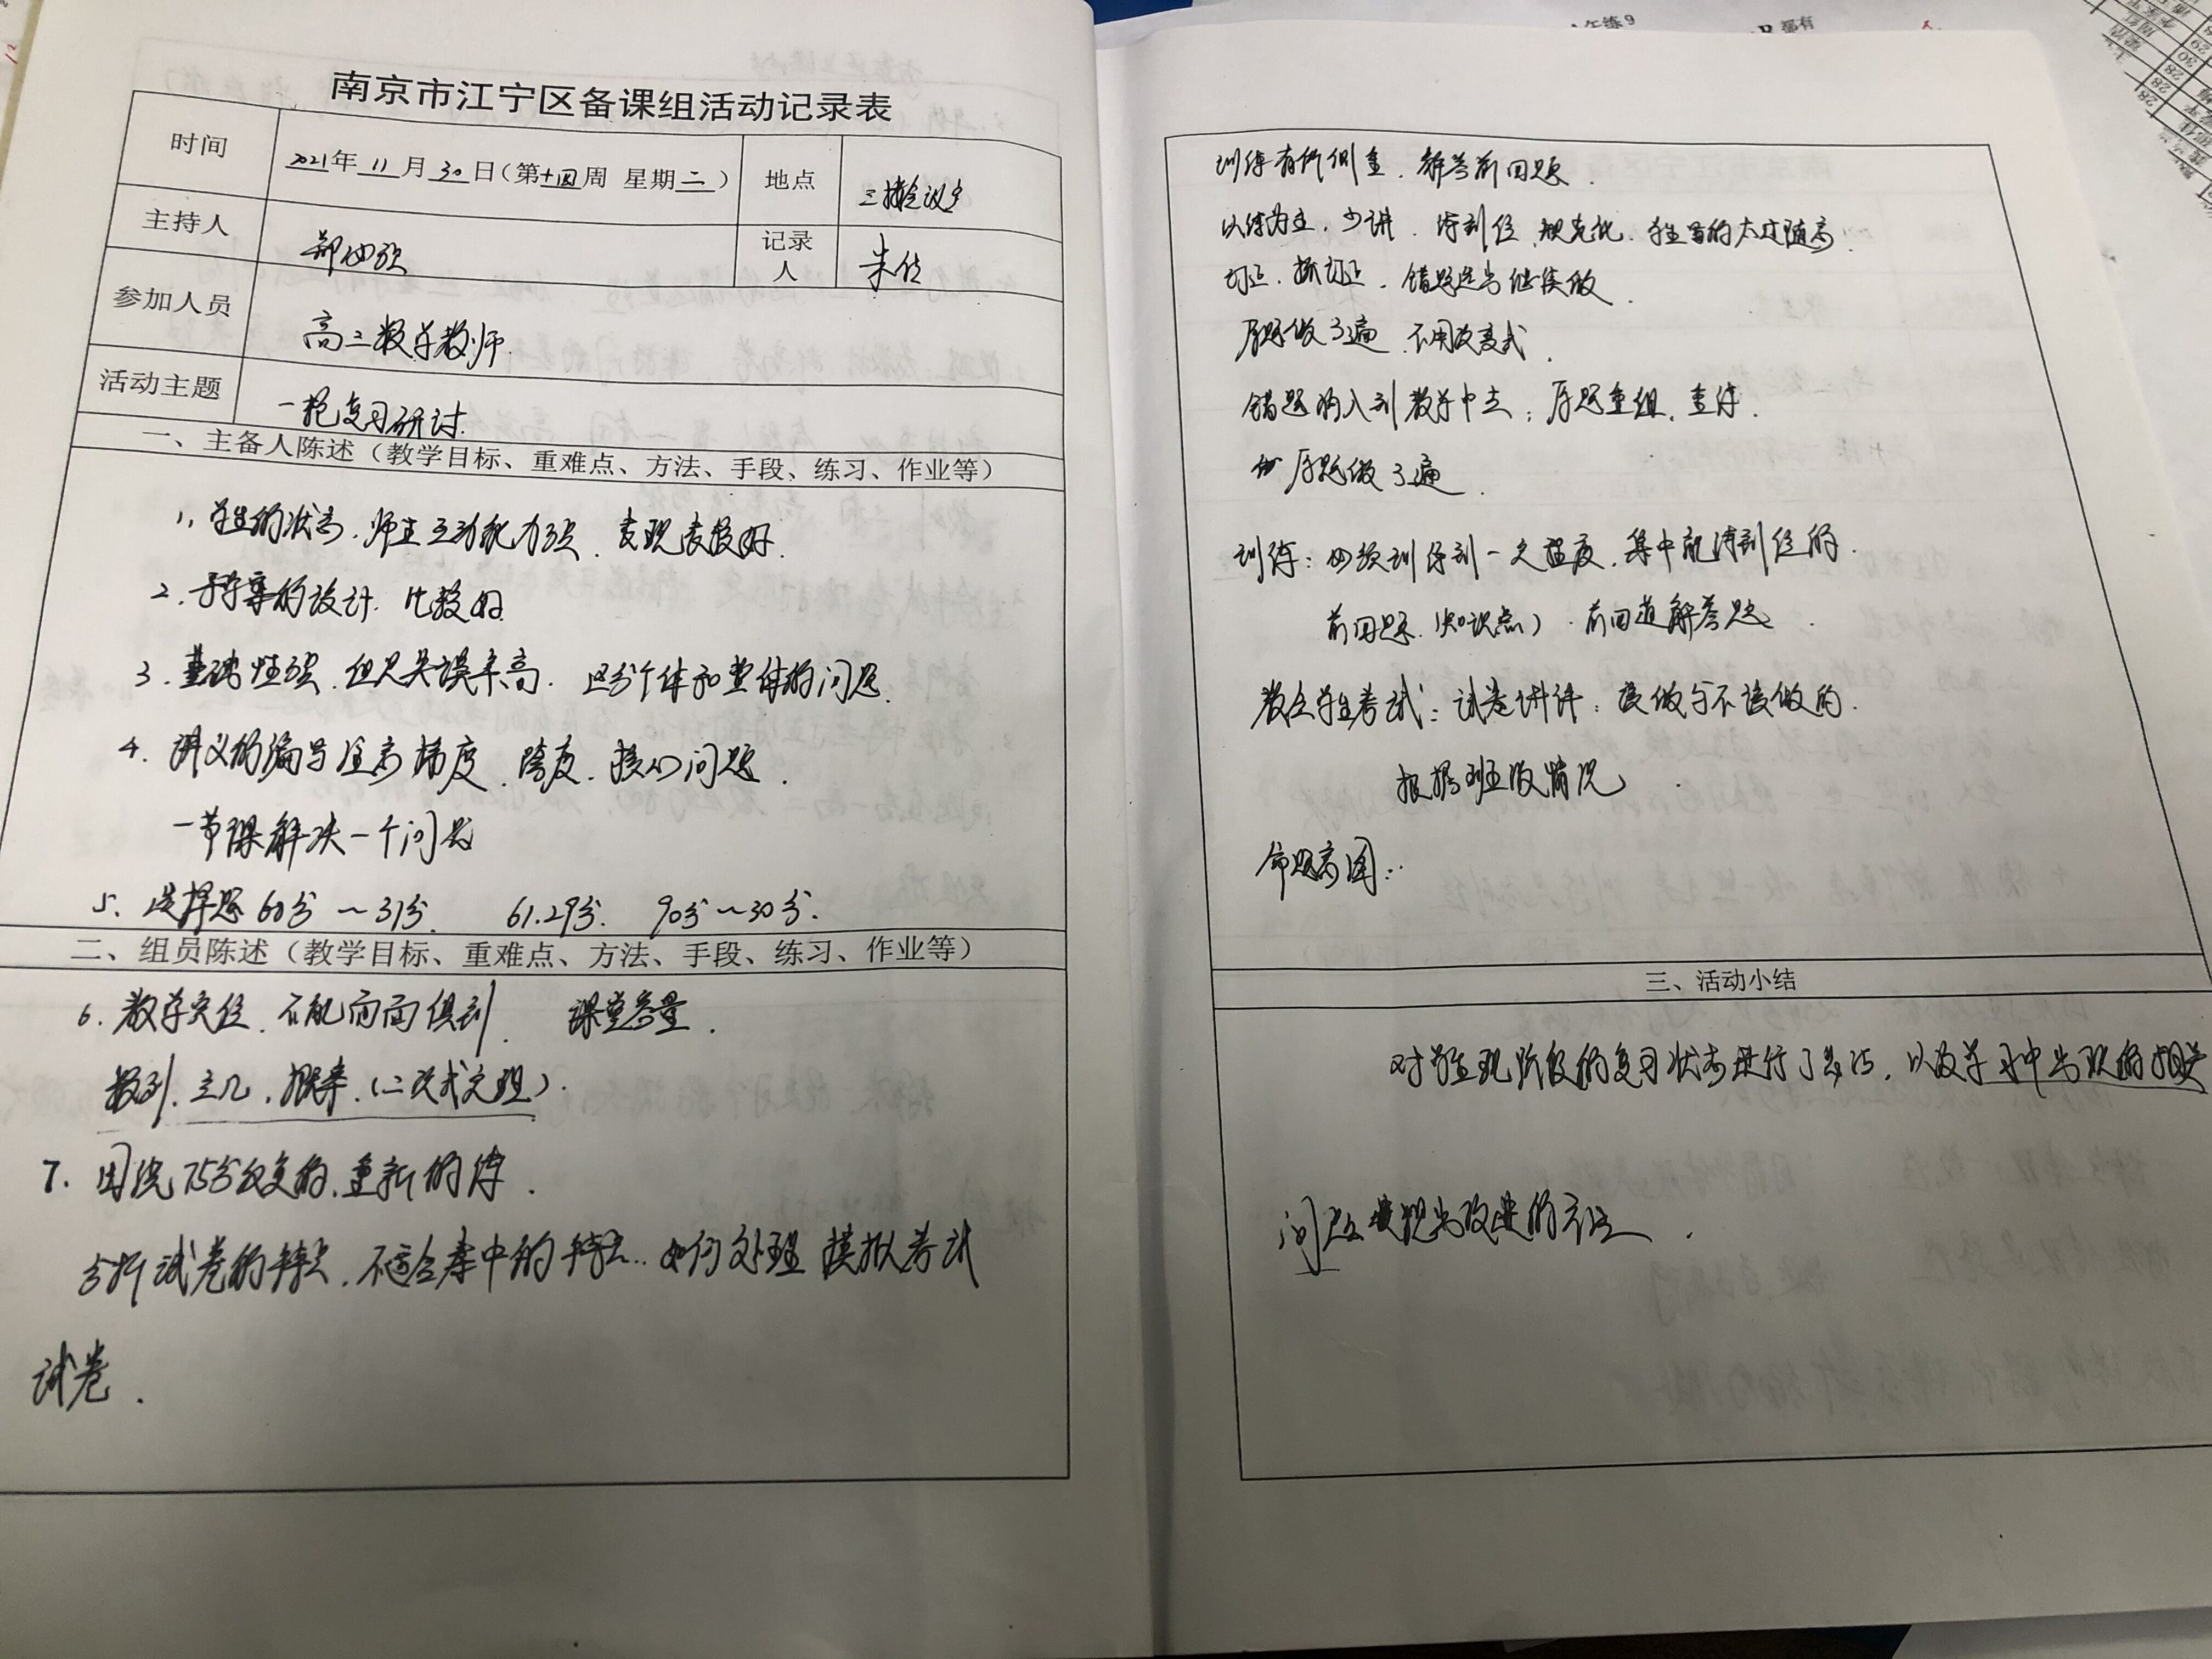 南京市江宁区备课组活动记录表
时间 2021年 11月 30日（第十四周 星期二） 地点 三楼会议室
主持人 记录人 朱
参加人员 高三数学教师
活动主题 一轮复习研讨
一、主备人陈述（教学目标、重难点、方法、手段、练习、作业等）
1、学生的状态、师生互动能力强、表现表较好.
2、导学案的设计 比较好
3、基础性强,但是失误率高. 区分个体和整体的问题.
4、讲义的编写注意梯度、跨度、核心问题.
一节课解决一个问题
5、选择题60分～31分. 61.29分. 90分～30分.
二、组员陈述（教学目标、重难点、方法、手段、练习、作业等）
6、教学定位、不能面面俱到. 课堂容量.
数列、立几、概率、(二次式定理).
7. 75分 的,重新的练.
分析试卷的特点,不适合 中的特点.. 如何处理模拟考试
试卷.
训练有所侧重、解答前四题.
以练为主,少讲.得到位、规范化.学生写的太过随意.
订正、抓订正.错题选出继续做.
原题做3遍 不用改变式.
错题纳入到教学中去；原题重组,重练.
原题做3遍.
训练： 训练到一定程度,集中就得到位的.
前四题.(知识点)、前四道解答题.
教会学生考试：试卷讲评：该做与不该做的.
根据班级情况.
命题意图：
三、活动小结
对学生现阶段的复习状态进行了总结,以及学习中出现的相关
问题 提出改进的方法.